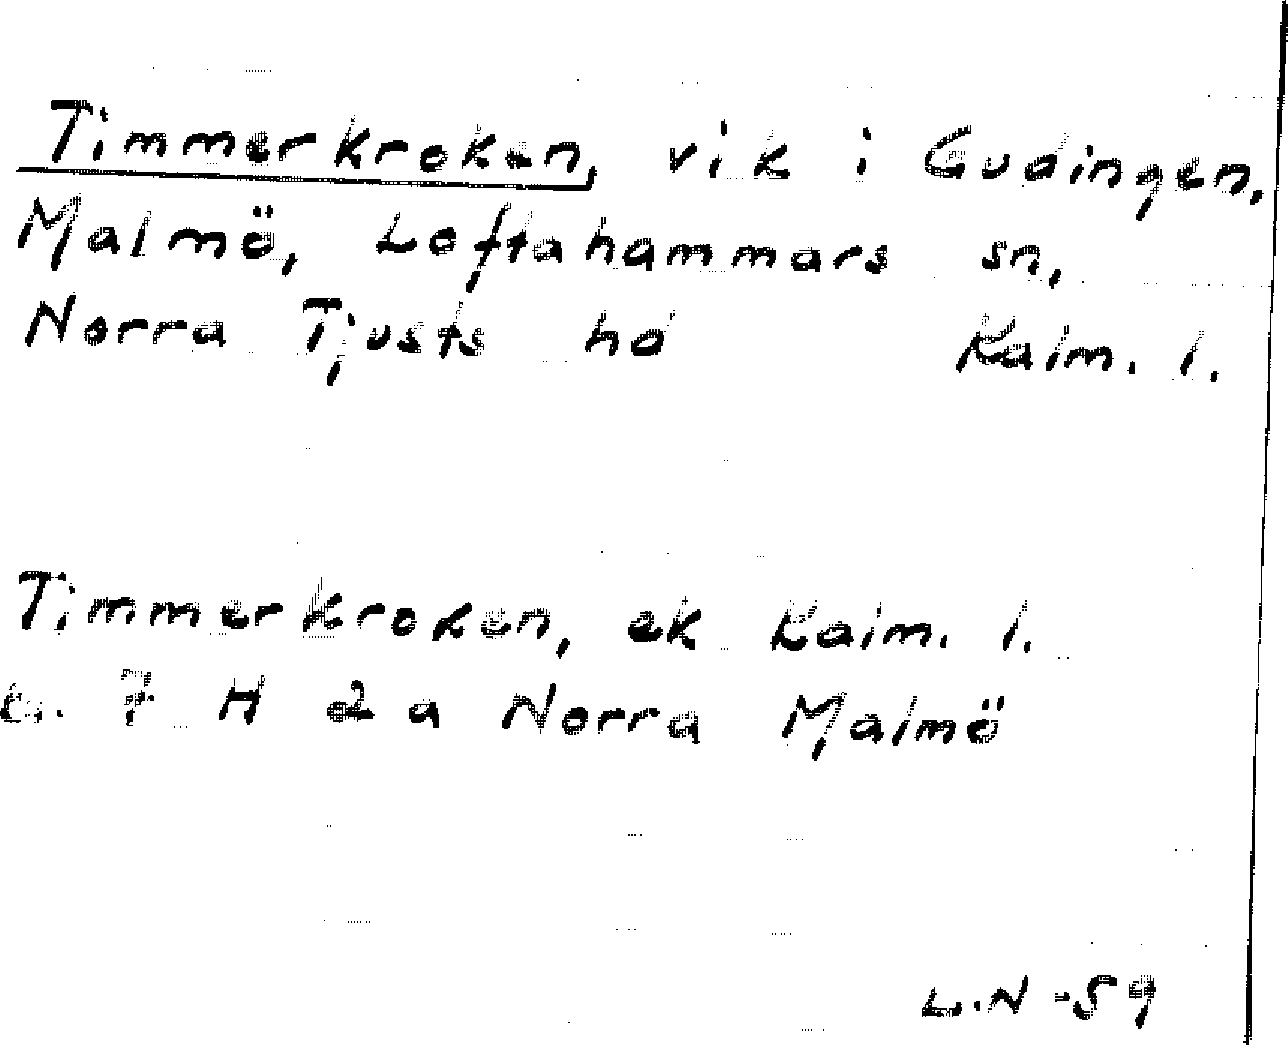 Timmerkroken, vik i Gudingen,
Malmö, Loftahammars sn,
Norra Tjusts hd Kalm. l.
Timmerkroken, ek Kalm. l.
7 H 2 a Norra Malmö
L.N -59